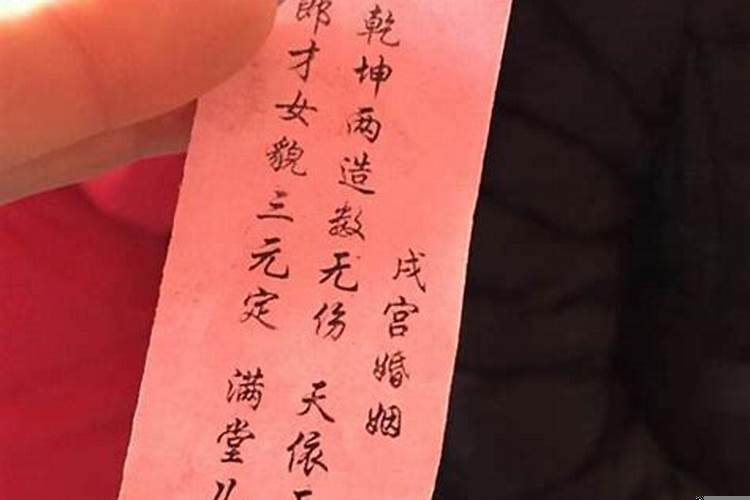 戌宫婚姻
乾坤两造数无伤 天依
郎才女貌三元定 满堂